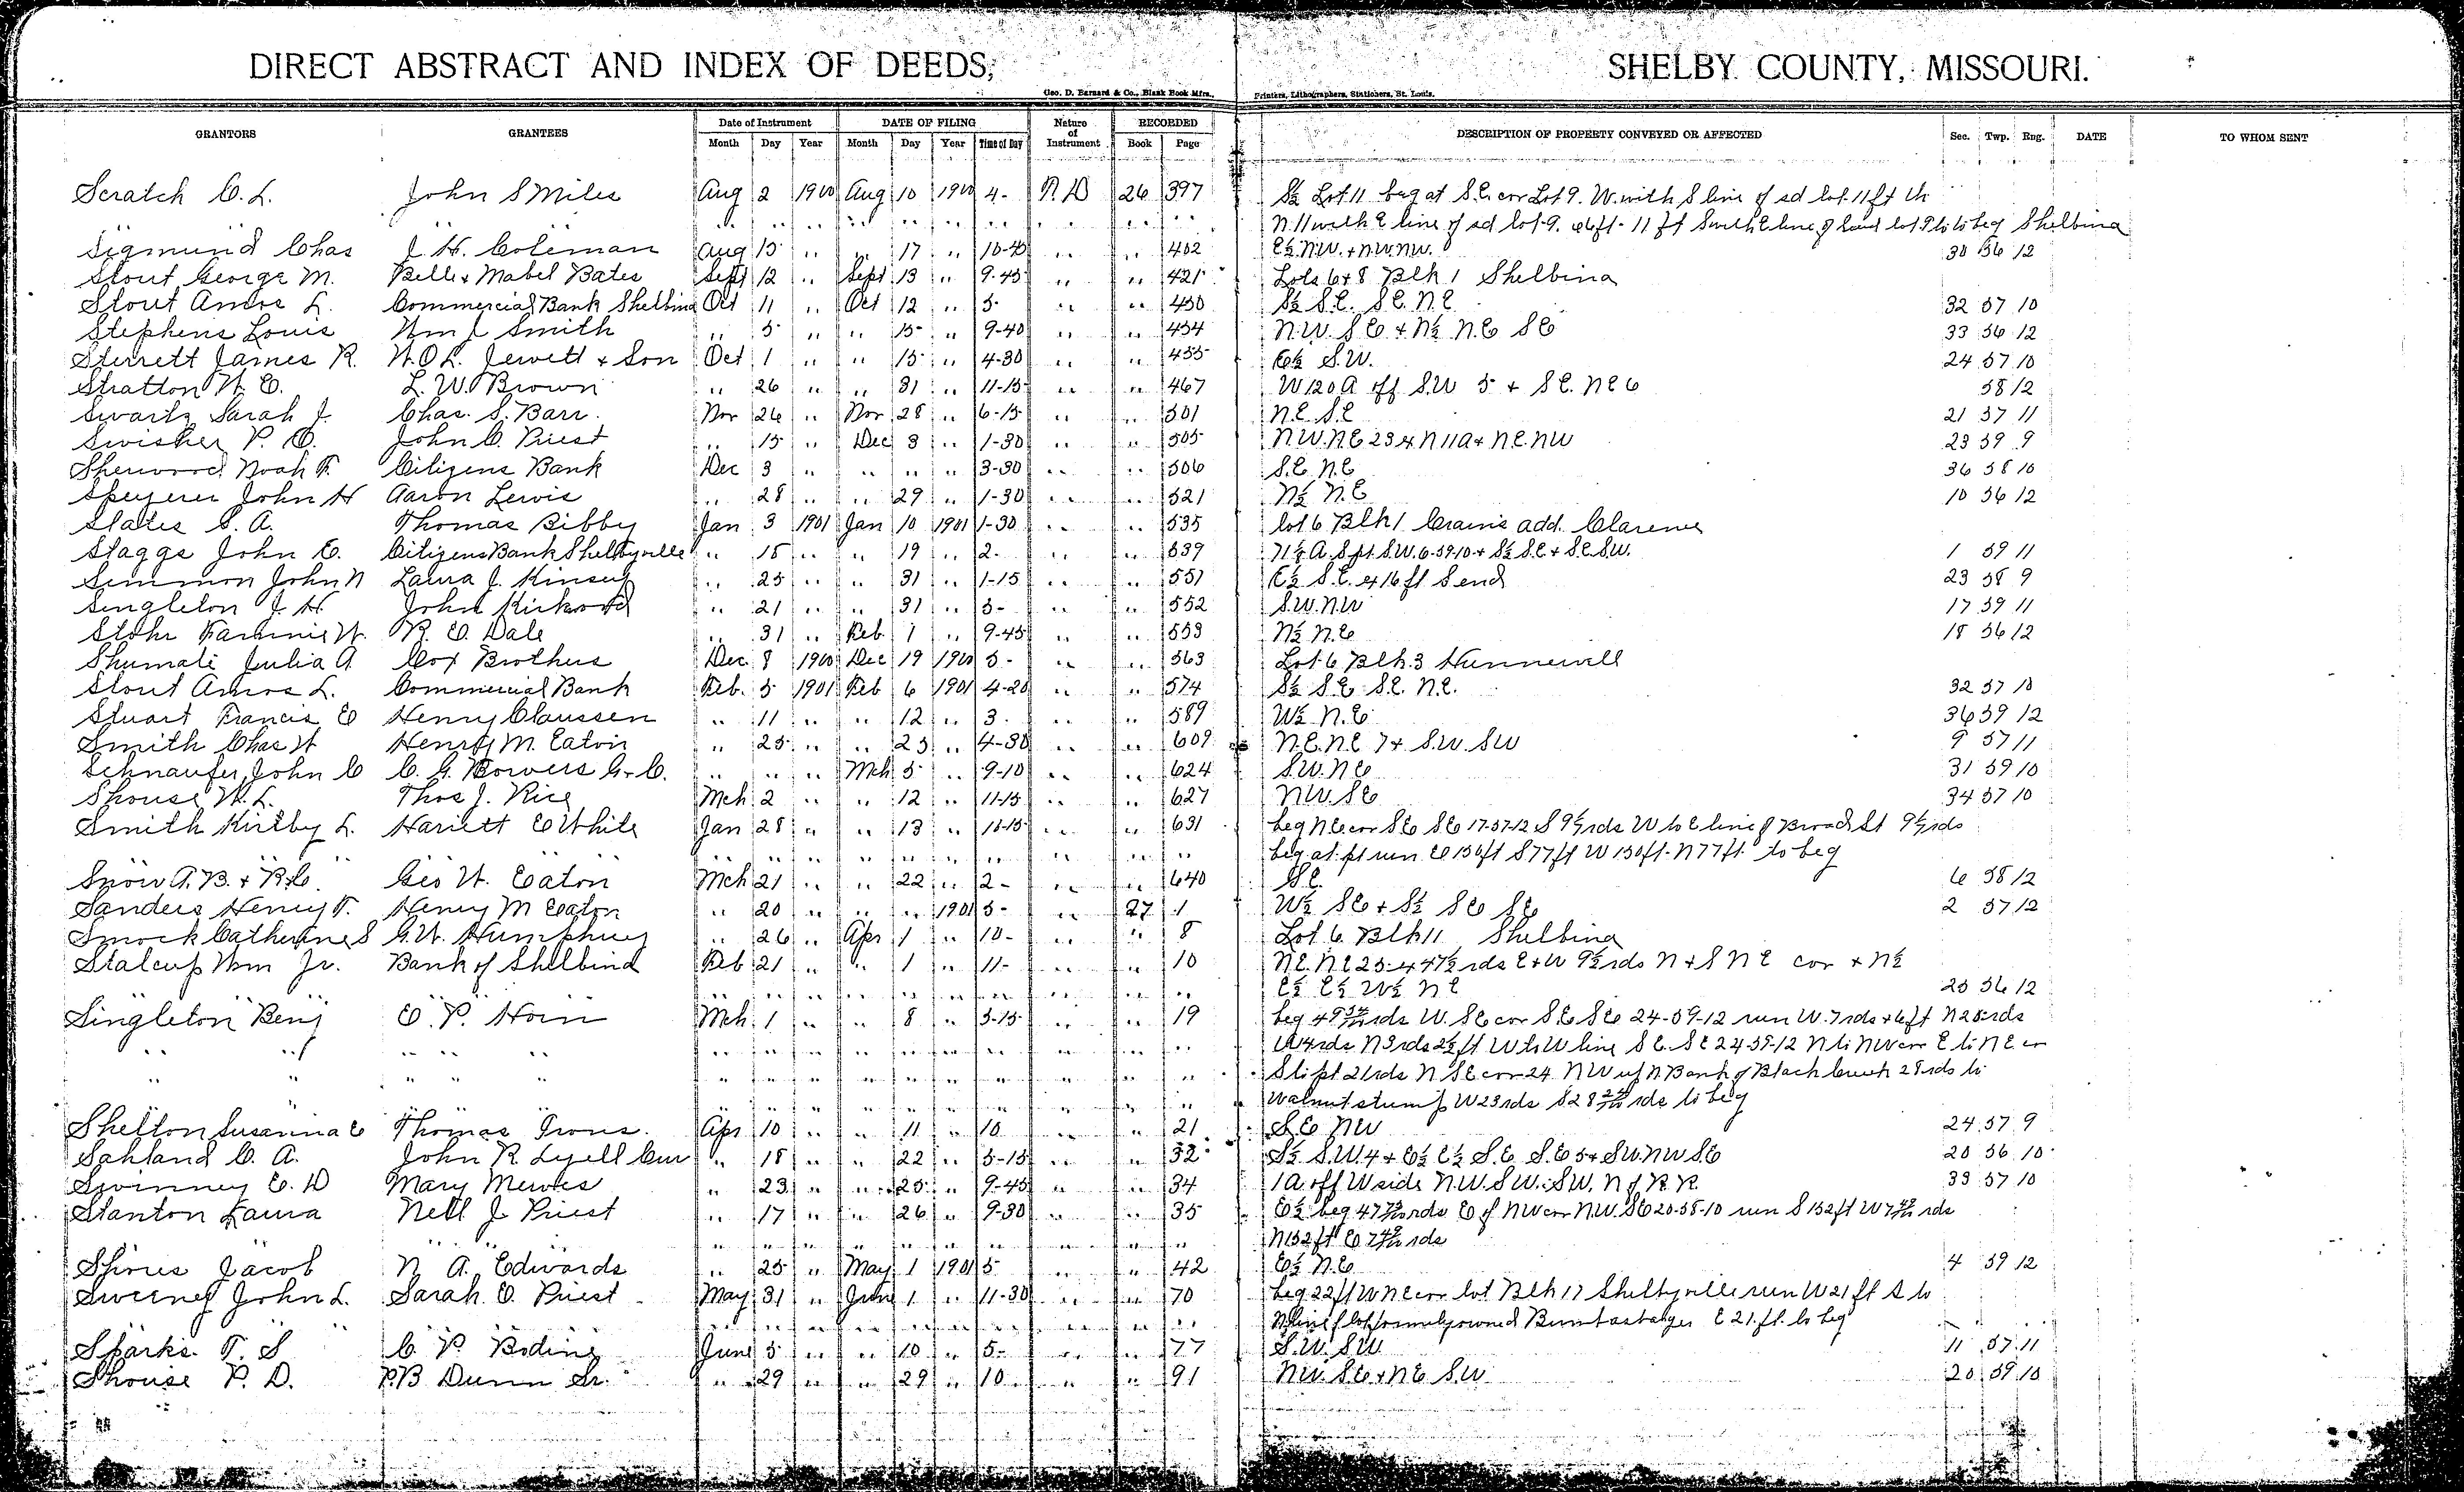 DIRECT ABSTRACT AND INDEX OF DEEDS, SHELBY COUNTY, MISSOURI.
Geo. D. Barnard & Co., Blank Book Mfrs., Printers, Lithographers, Stationers, St. Louis.
GRANTORS GRANTEES Date of Instrument DATE OF FILING Nature of Instrument RECORDED DESCRIPTION OF PROPERTY CONVEYED OR AFFECTED Sec. Twp. Rng. DATE TO WHOM SENT
Month Day Year Month Day Year Time of Day Book Page
Scratch C. L. John S Miles Aug 2 1900 Aug 10 1900 4- R.D 26 397 S½ Lot 11 beg at S.E. cor Lot 9. W. with S line of sd lot 11 ft th
" " " " " " " " " N. 11 with E line of sd lot 9. 66 ft - 11 ft S with E line of said lot 9 to to beg Shelbina
Sigmund Chas J. H. Coleman Aug 15 " " 17 " 10-45 " " 402 E½ NW. + NW NW. 30 56 12
Stout George M. Belle & Mabel Bates Sept 12 " Sept 13 " 9-45 " " 421 Lots 6 & 8 Blk 1 Shelbina
Stout Amos L. Commercial Bank Shelbina Oct 11 " Oct 12 " 5- " " 450 S½ S.E. SE. N.E 32 57 10
Stephens Louis Wm J. Smith " 5 " " 15 " 9-40 " " 454 N.W. SE + N½ N.E SE 33 56 12
Sterrett James R. W.O.L. Jewett & Son Oct 1 " " 15 " 4-30 " " 455 E½ S.W. 24 57 10
Stratton W. E. L. W. Brown " 26 " " 31 " 11-15 " " 467 W 120 A off S.W 5 + SE. NE 6 58 12
Swartz Sarah J. Chas. S. Barr. Nov 26 " Nov 28 " 6-15 " " 501 N.E. S.E 21 57 11
Swisher P. O. John C. Priest " 15 " Dec 3 " 1-30 " " 505 N.W. NE 23 & N 11 a + N.E. NW 23 59 9
Sherwood Noah F. Citizens Bank Dec 3 " " " " 3-30 " " 506 S.E N.E 36 58 10
Speyerer John H Aaron Lewis " 28 " " 29 " 1-30 " " 521 N½ N.E 10 56 12
States S. A. Thomas Bibby Jan 3 1901 Jan 10 1901 1-30 " " 535 Lot 6 Blk 1 Crains add. Clarence
Staggs John E. Citizens Bank Shelbyville " 15 " " 19 " 2- " " 539 71⅛ A. S pt S.W. 6-59-10 + S½ S.E + S.E. S.W. 1 59 11
Simmon John N Laura J. Kinsey " 25 " " 31 " 1-15 " " 551 E½ S.E. & 16 ft S end 23 58 9
Singleton J. H. John Kirkwood " 21 " " 31 " 3- " " 552 S.W. N.W 17 59 11
Stohr Fannie W. R. E. Dale " 31 " Feb 1 " 9-45 " " 553 N½ N.E 18 56 12
Shumate Julia A Cox Brothers Dec 8 1900 Dec 19 1900 5- " " 563 Lot 6 Blk 3 Hunnewell
Stout Amos L. Commercial Bank Feb. 5 1901 Feb 6 1901 4-20 " " 574 S½ S.E. S.E. N.E. 32 57 10
Stuart Francis E Henry Claussen " 11 " " 12 " 3. " " 589 W½ N.E 36 59 12
Smith Chas W Henry M. Eaton " 25 " " 25 " 4-30 " " 609 N.E. NE 7 + S.W. SW 9 57 11
Schnaufer John C C. G. Bowers G. C. " " " Mch 5 " 9-10 " " 624 S.W. NE 31 59 10
Shouse W. L. Thos J. Rice Mch 2 " " 12 " 11-15 " " 627 NW. SE 34 57 10
Smith Kirtby L. Hariett E White Jan 28 " " 13 " 11-15 " " 631 beg NE cor SE SE 17-57-12 S 9½ rds W to E line of Broad St 9½ rds
" " " " " " " " " beg at pt run E 150 ft S 77 ft W 150 ft - N 77 ft to beg
Snow A. B. + R.C. Geo W. Eaton Mch 21 " " 22 " 2- " " 640 S.E. 6 58 12
Sanders Henry T. Henry M Eaton " 20 " " " 1901 5- " 27 1 W½ SE + S½ SE SE 2 57 12
Smock Catherine S G. W. Humphrey " 26 " Apr 1 " 10- " " 8 Lot 6 Blk 11 Shelbina
Stalcup Wm Jr. Bank of Shelbina Feb 21 " " 1 " 11- " " 10 N.E. NE 25 & 47½ rds E & W 9½ rds N & S NE cor + N½
" " " " " " " " " E½ E½ W½ NE 25 56 12
Singleton Benj E. P. Horn Mch 1 " " 8 " 3-15 " " 19 beg 49 rds W. SE cor S.E SE 24-59-12 run W. 7 rds + 6 ft N 25 rds
" " " " " " " " " W 4 rds N 3 rds 2½ ft W to W line S.E. SE 24-59-12 N to NW cor E to N.E cor
" " " " " " " " " S to pt 21 rds N SE cor 24 NW up N Bank of Black Creek 28 rds to
" " " " " " " " " Walnut stump W 23 rds S 28 rds to beg
Shelton Susanna E Thomas Irons. Apr 10 " " 11 " 10 " " 21 S.E NW 24 57 9
Sahland C. A. John R. Lyell Cur " 18 " " 22 " 3-15 " " 32 S½ S.W. 4 + E½ E½ S.E. S.E 5 + SW. NW SE 20 56 10
Swinney E. D Mary Mewes " 23 " " 25 " 9-45 " " 34 1 A. off W side N.W. SW. SW, N of R.R. 33 57 10
Stanton Laura Nell J. Priest " 17 " " 26 " 9-30 " " 35 E½ beg 47 rds E of NW cor N.W. SE 20-58-10 run S 152 ft W 7 rds
" " " " " " " " " N 152 ft E 7 rds
Spires Jacob N. A. Edwards " 25 " May 1 1901 5- " " 42 E½ N.E 4 59 12
Sweeney John L. Sarah E. Priest May 31 " June 1 " 11-30 " " 70 beg 22 ft W NE cor lot Blk 17 Shelbyville run W 21 ft S to
" " " " " " " " " N line of lot formerly owned E 21 ft. to beg
Sparks T. S C. P. Bodine June 5 " " 10 " 5- " " 77 S.W. SW 11 57 11
Shouse P. D. P.B Dunn Sr. " 29 " " 29 " 10 " " 91 NW. SE + NE S.W 20 59 10